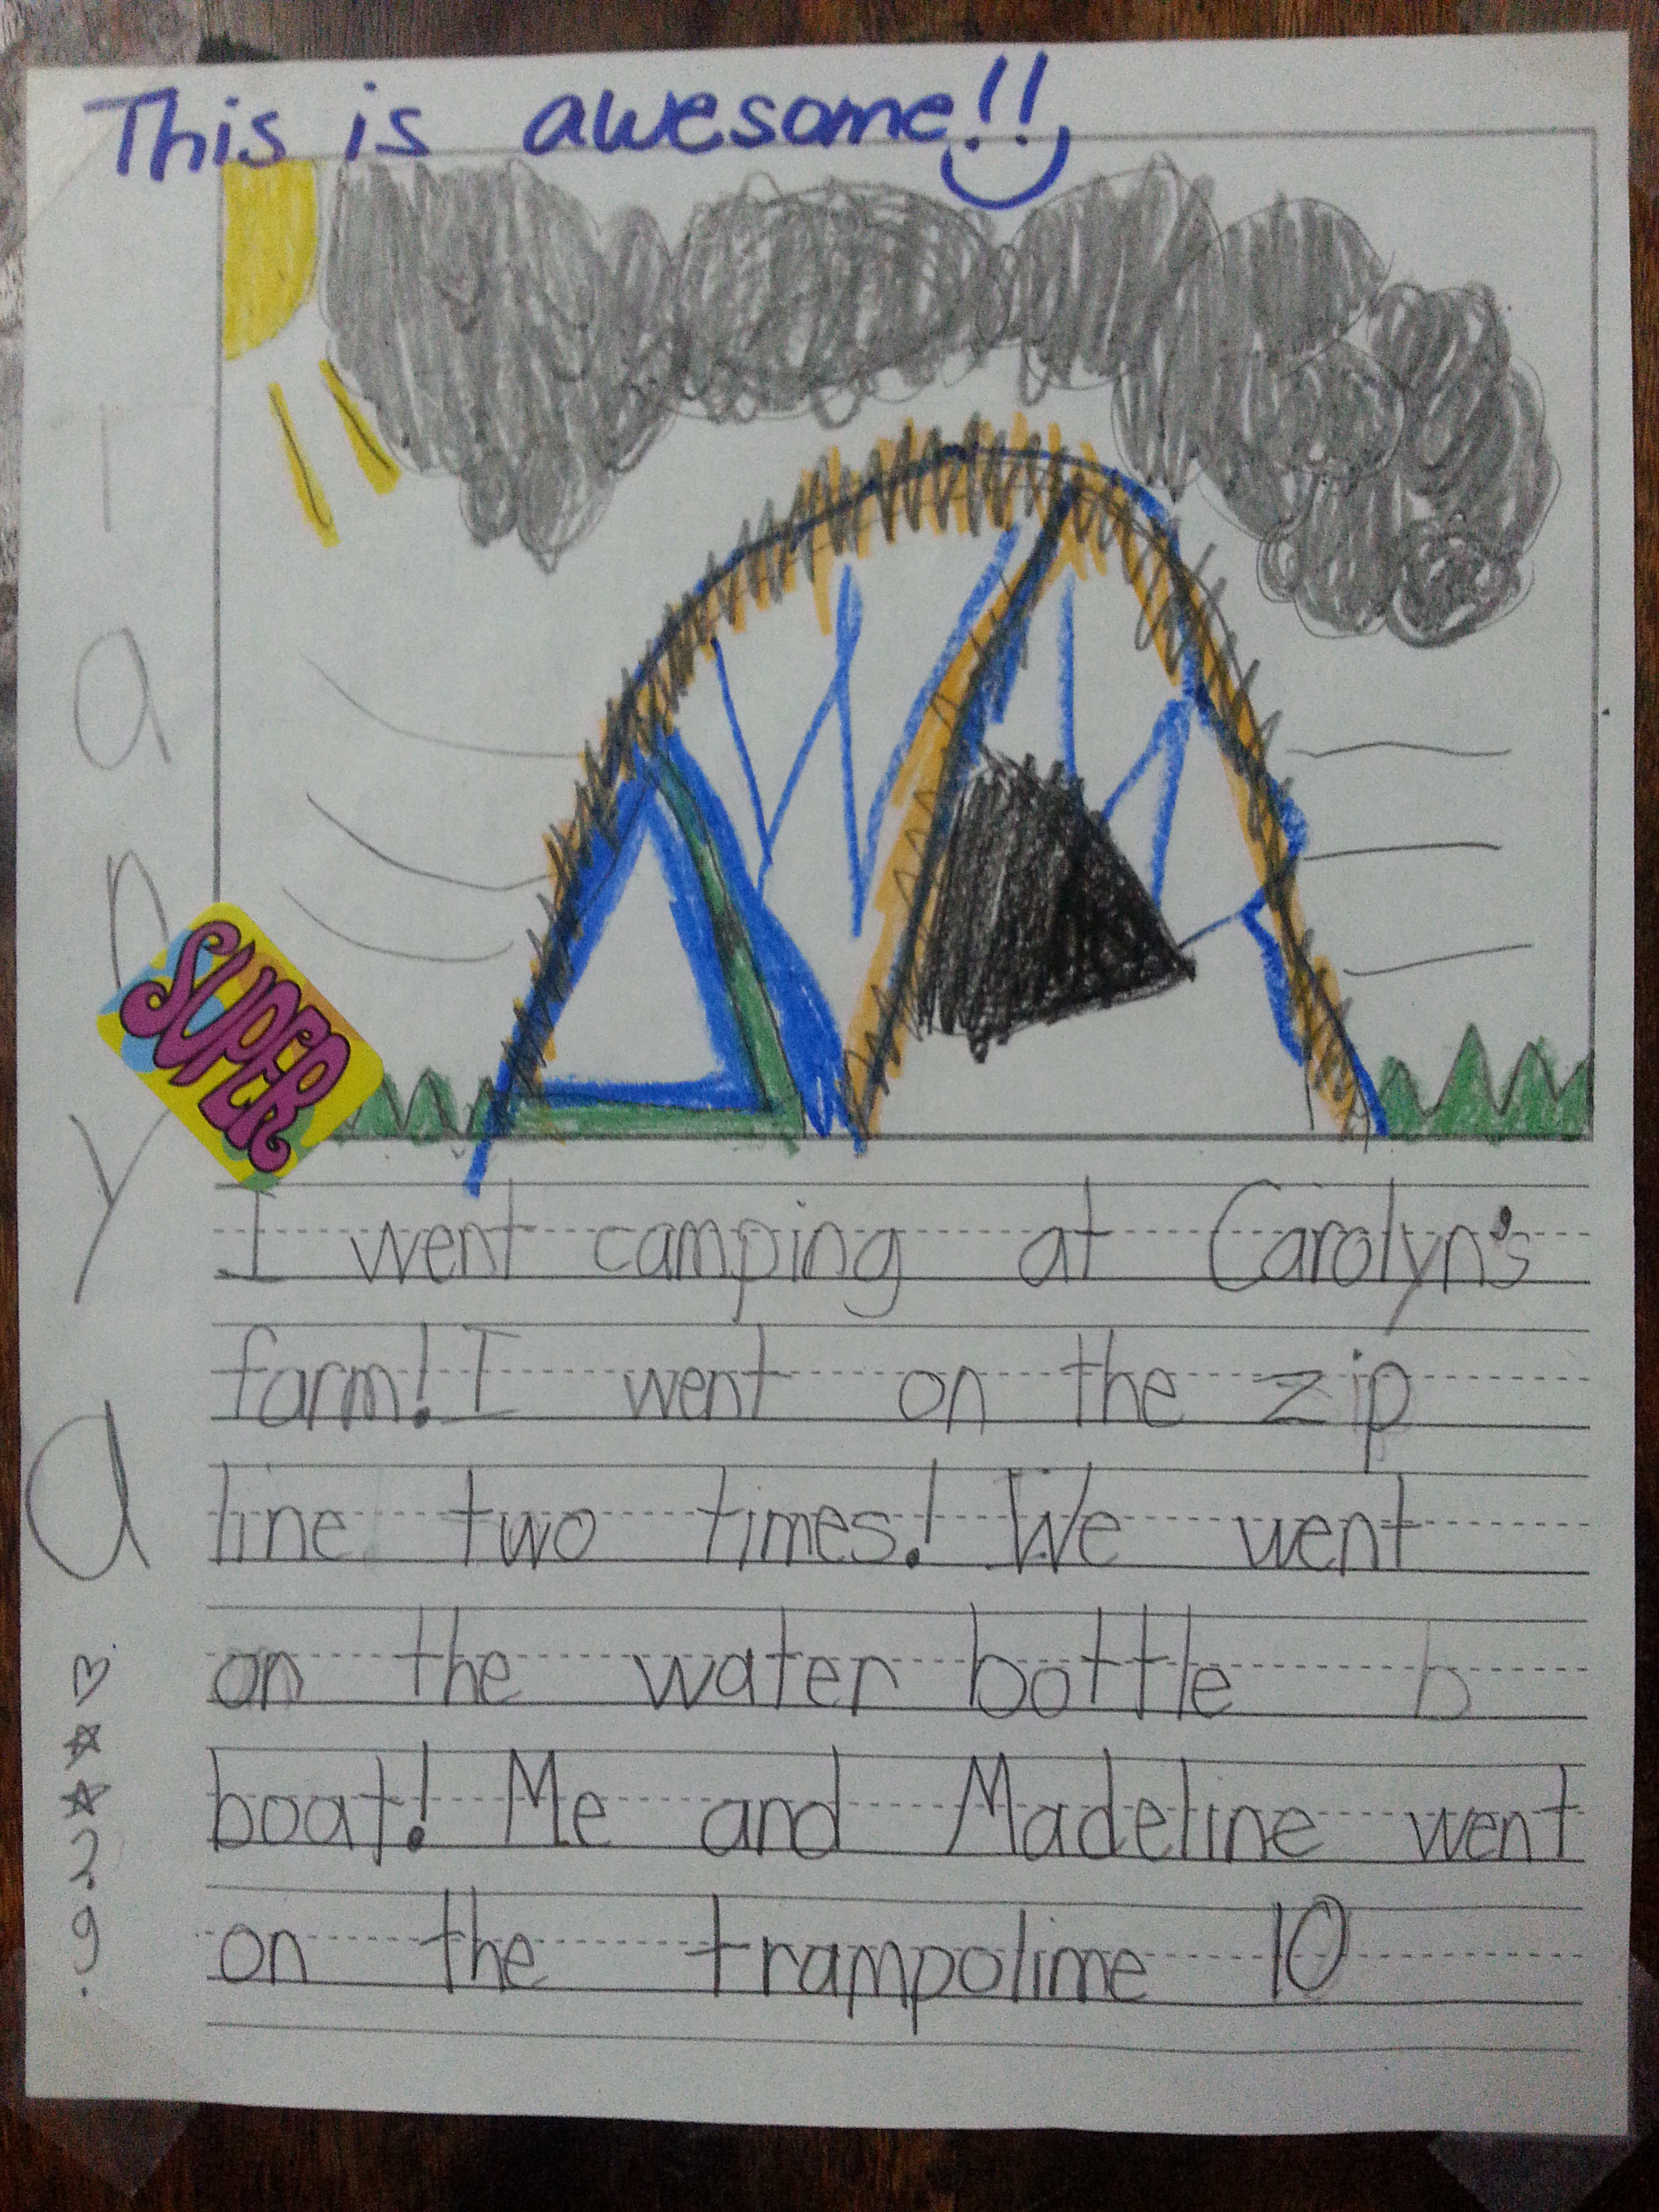 This is awesome!!
SUPER
I went camping at Carolyn's
farm! I went on the zip
line two times! We went
on the water bottle b
boat! Me and Madeline went
on the trampolime 10